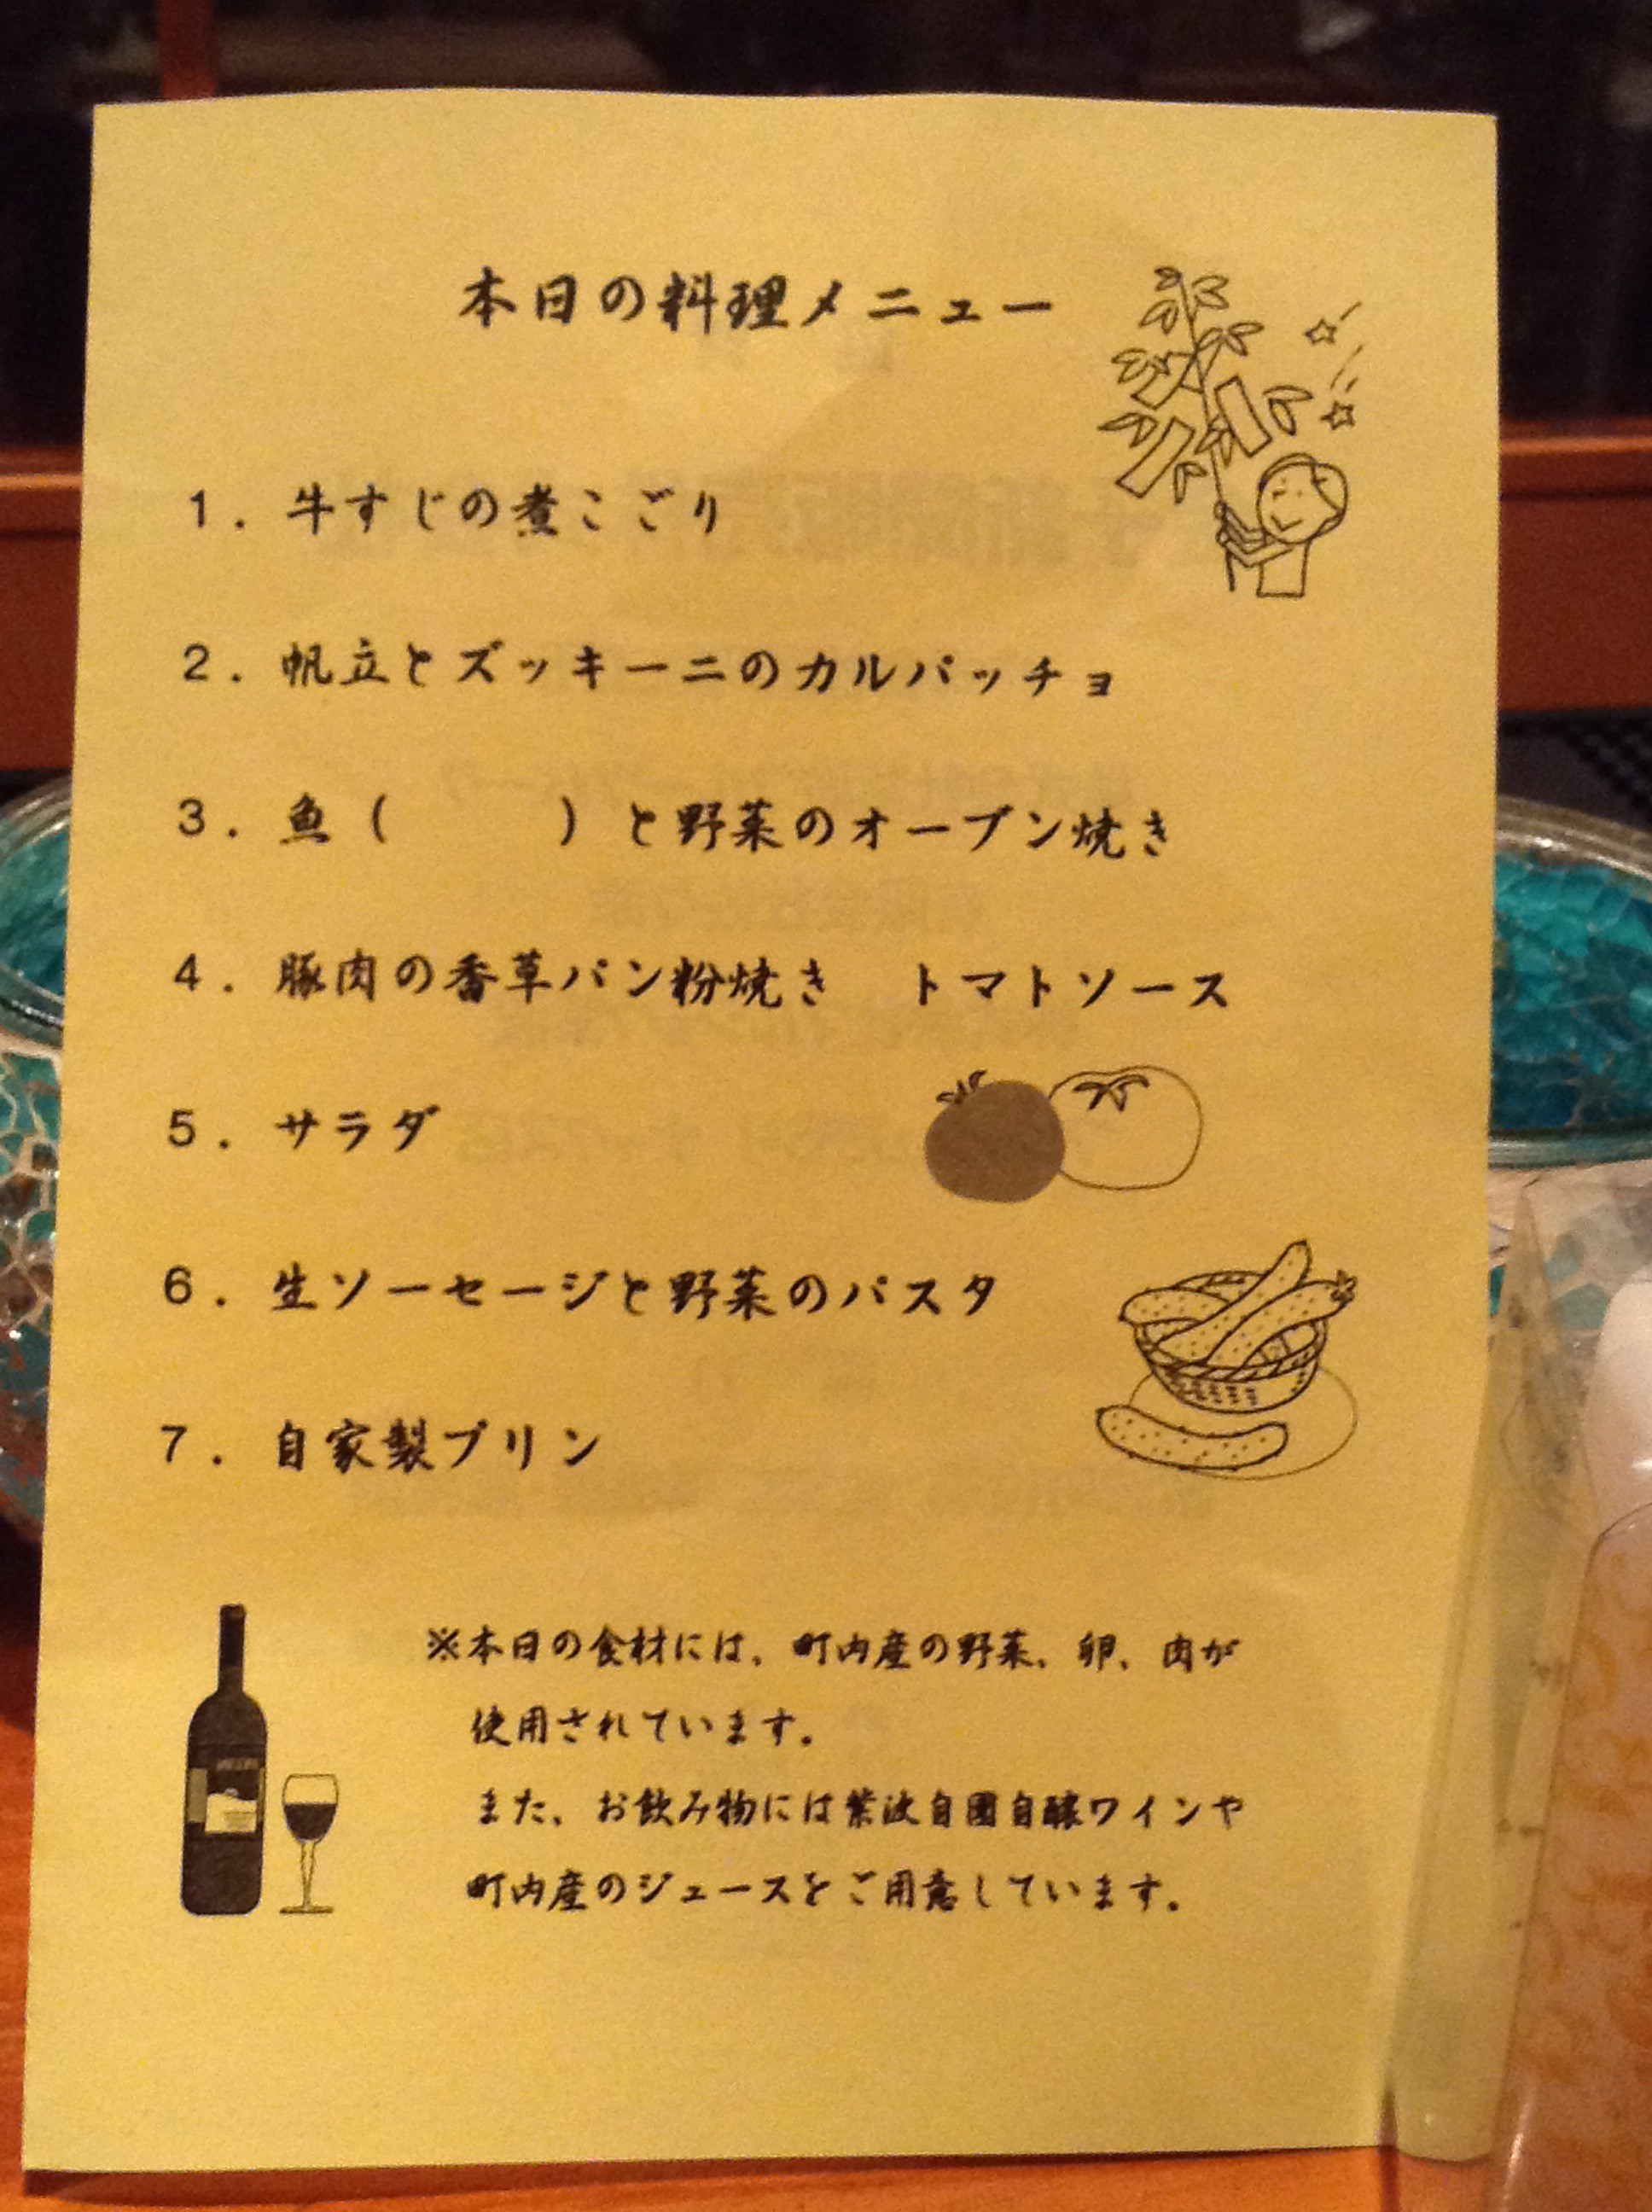 本日の料理メニュー
1. 牛すじの煮こごり
2. 帆立とズッキーニのカルパッチョ
3. 魚（　　　）と野菜のオーブン焼き
4. 豚肉の香草パン粉焼き　トマトソース
5. サラダ
6. 生ソーセージと野菜のパスタ
7. 自家製プリン
※本日の食材には、町内産の野菜、卵、肉が
使用されています。
また、お飲み物には紫波自園自醸ワインや
町内産のジュースをご用意しています。